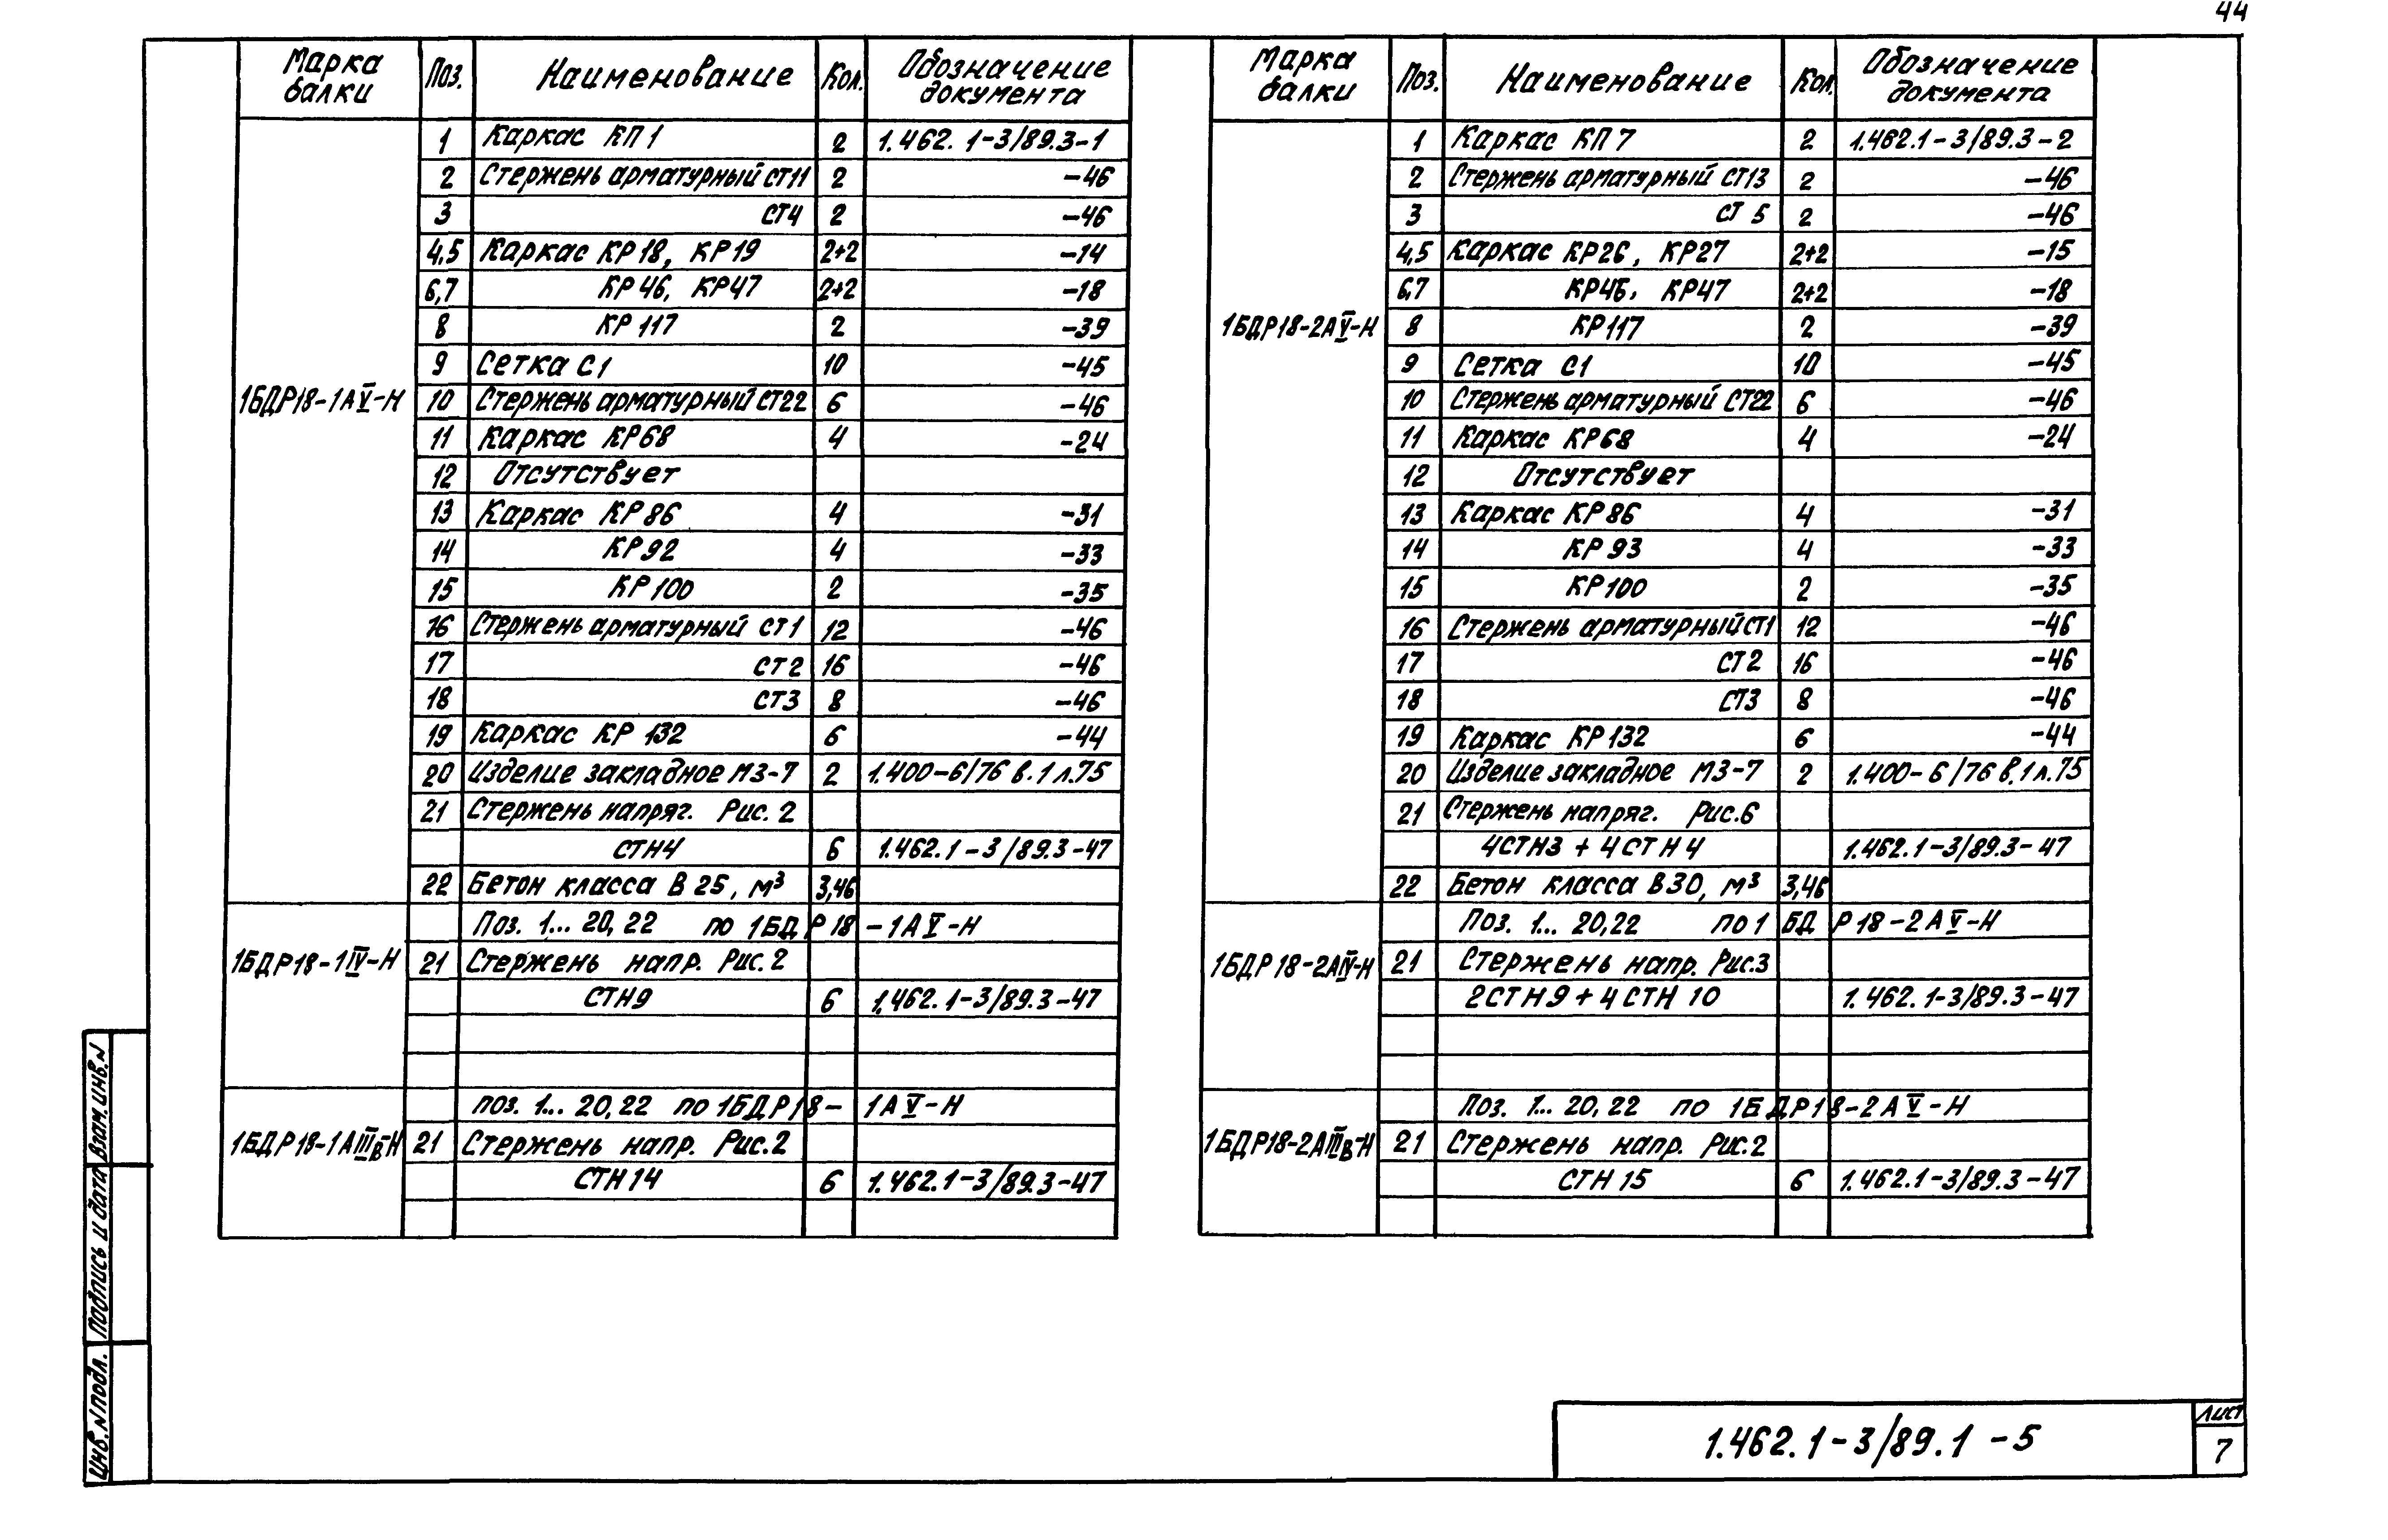 44
Марка балки Поз. Наименование Кол. Обозначение документа
1БДР18-1АV-Н
1 Каркас КП1 2 1.462.1-3/89.3-1
2 Стержень арматурный СТ11 2 -46
3 СТ4 2 -46
4,5 Каркас КР18, КР19 2+2 -14
6,7 КР46, КР47 2+2 -18
8 КР117 2 -39
9 Сетка С1 10 -45
10 Стержень арматурный СТ22 6 -46
11 Каркас КР68 4 -24
12 Отсутствует
13 Каркас КР86 4 -31
14 КР92 4 -33
15 КР100 2 -35
16 Стержень арматурный СТ1 12 -46
17 СТ2 16 -46
18 СТ3 8 -46
19 Каркас КР132 6 -44
20 Изделие закладное МЗ-7 2 1.400-6/76 в.1 л.75
21 Стержень напряг. Рис. 2
СТН4 6 1.462.1-3/89.3-47
22 Бетон класса В25, м³ 3,46
Поз. 1...20,22 по 1БДР18-1АV-Н
1БДР18-1IV-Н 21 Стержень напр. Рис.2
СТН9 6 1.462.1-3/89.3-47
поз. 1...20,22 по 1БДР18-1АV-Н
1БДР18-1АIIIв-Н 21 Стержень напр. Рис.2
СТН14 6 1.462.1-3/89.3-47
Марка балки Поз. Наименование Кол. Обозначение документа
1БДР18-2АV-Н
1 Каркас КП7 2 1.462.1-3/89.3-2
2 Стержень арматурный СТ13 2 -46
3 СТ5 2 -46
4,5 Каркас КР26, КР27 2+2 -15
6,7 КР46, КР47 2+2 -18
8 КР117 2 -39
9 Сетка С1 10 -45
10 Стержень арматурный СТ22 6 -46
11 Каркас КР68 4 -24
12 Отсутствует
13 Каркас КР86 4 -31
14 КР93 4 -33
15 КР100 2 -35
16 Стержень арматурный СТ1 12 -46
17 СТ2 16 -46
18 СТ3 8 -46
19 Каркас КР132 6 -44
20 Изделие закладное МЗ-7 2 1.400-6/76 в.1 л.75
21 Стержень напряг. Рис.6
4СТН3 + 4СТН4 1.462.1-3/89.3-47
22 Бетон класса В30, м³ 3,46
Поз. 1...20,22 по 1БДР18-2АV-Н
1БДР18-2АIV-Н 21 Стержень напр. Рис.3
2СТН9 + 4СТН10 1.462.1-3/89.3-47
Поз. 1...20,22 по 1БДР18-2АV-Н
1БДР18-2АIIIв-Н 21 Стержень напр. Рис.2
СТН15 6 1.462.1-3/89.3-47
Взам. инв. N
Подпись и дата
Инв. N подл.
1.462.1-3/89.1-5
Лист
7